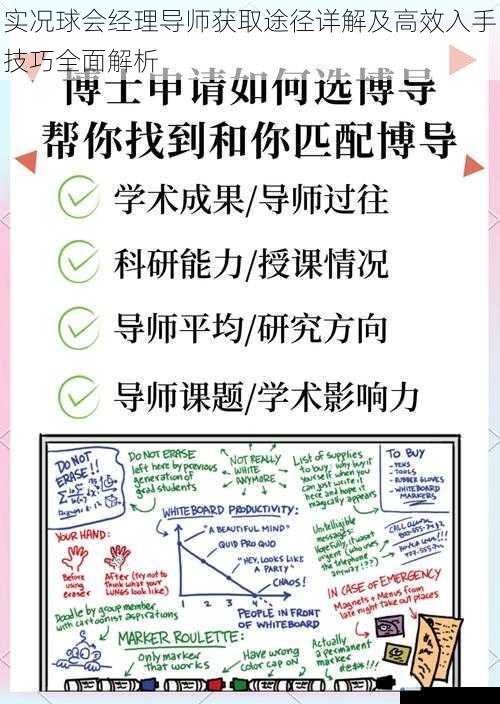 实况球会经理导师获取途径详解及高效入手
技巧全面解析
博士申请如何选博导
帮你找到和你匹配博导
学术成果/导师过往
科研能力/授课情况
导师平均/研究方向
导师课题/学术影响力
DO NOT
ERASE!!
DO NOT ERASE
left here by previous
generation of
grad students
NOT REALLY
WHITE
ANYMORE
List of Supplies
to buy: why buy it
yourself when you
can just write it
here and hope it
magically appears
TO BUY
- PENS
- TOOLS
- RUBBER GLOVES
- WHITEBOARD
MARKERS
YOUR HAND:
Before
using
eraser
After (try not to
think what your
LUNGS look like)
WHITEBOARD PRODUCTIVITY:
"A BEAUTIFUL MIND"
QUID PRO QUO
"HEY, LOOKS LIKE
A PARTY"
CHAOS!
1 2 3 4
PEOPLE IN FRONT
OF WHITEBOARD
Unintelligible
messages
Hopefully, it wasn't
urgent (who uses
the telephone
anyway???)
IN CASE OF EMERGENCY
Magnets + Menus from
late night take out places
Doodle by group member
with cartoonist aspirations
MARKER ROULETTE:
Only marker
that works
Have wrong
color cap on
Actually
a permanent
marker